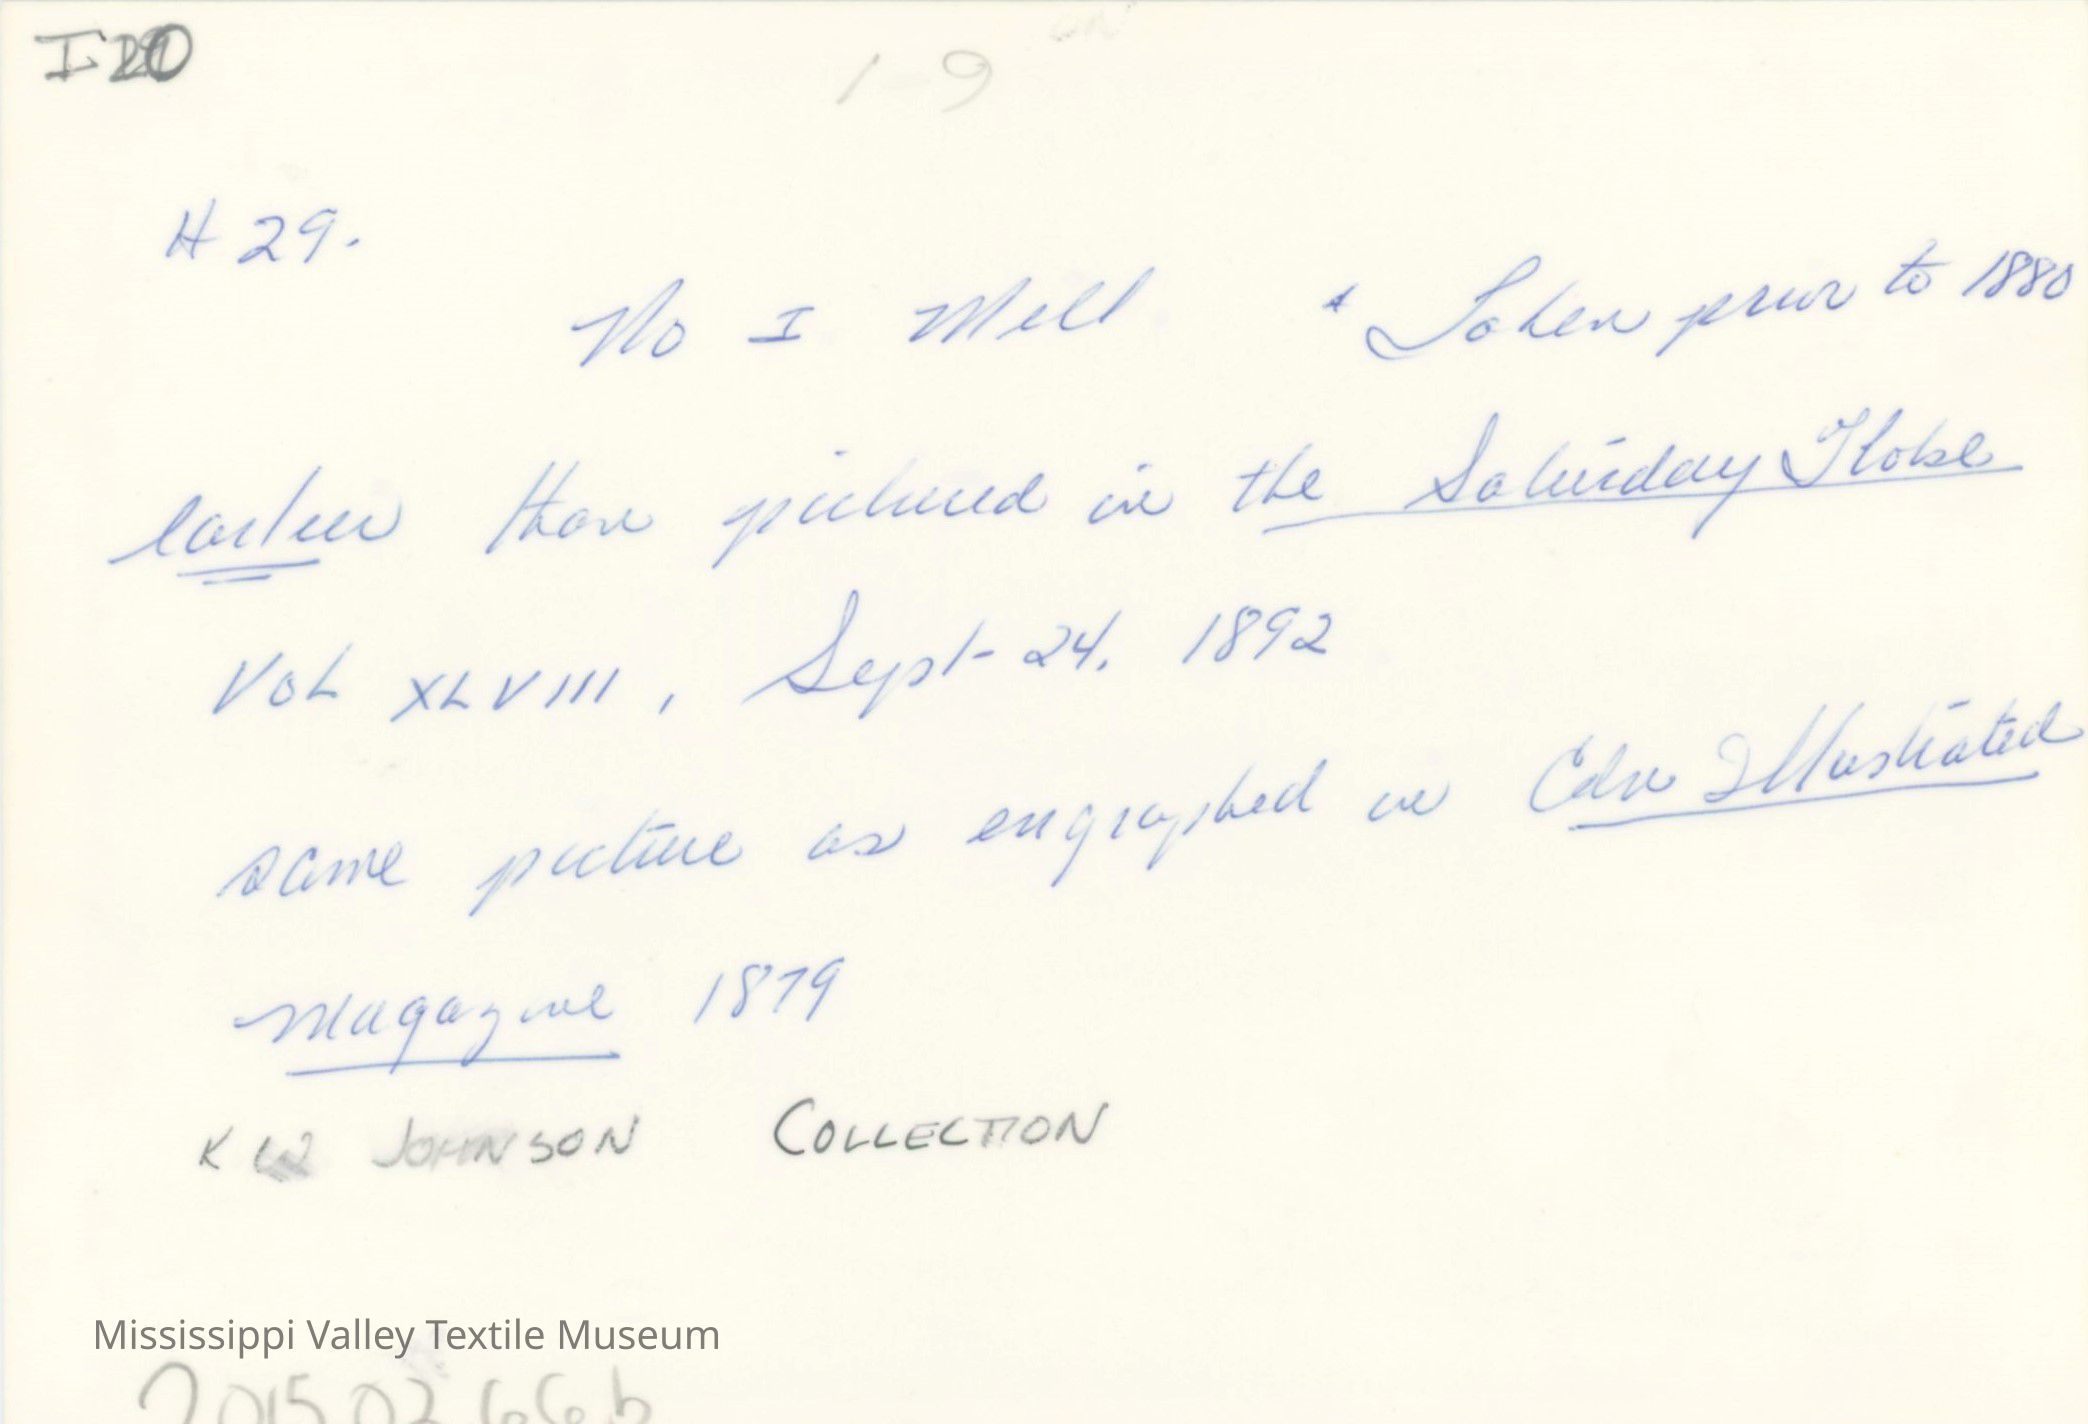 I 20
1-9
H 29.
No I Mill * Taken prior to 1880
earlier than pictured in the Saturday Globe
Vol XLVIII, Sept 24, 1892
same picture as engraphed in Cdn Illustrated
Magazine 1879
K W JOHNSON COLLECTION
Mississippi Valley Textile Museum
2015 02 66 b